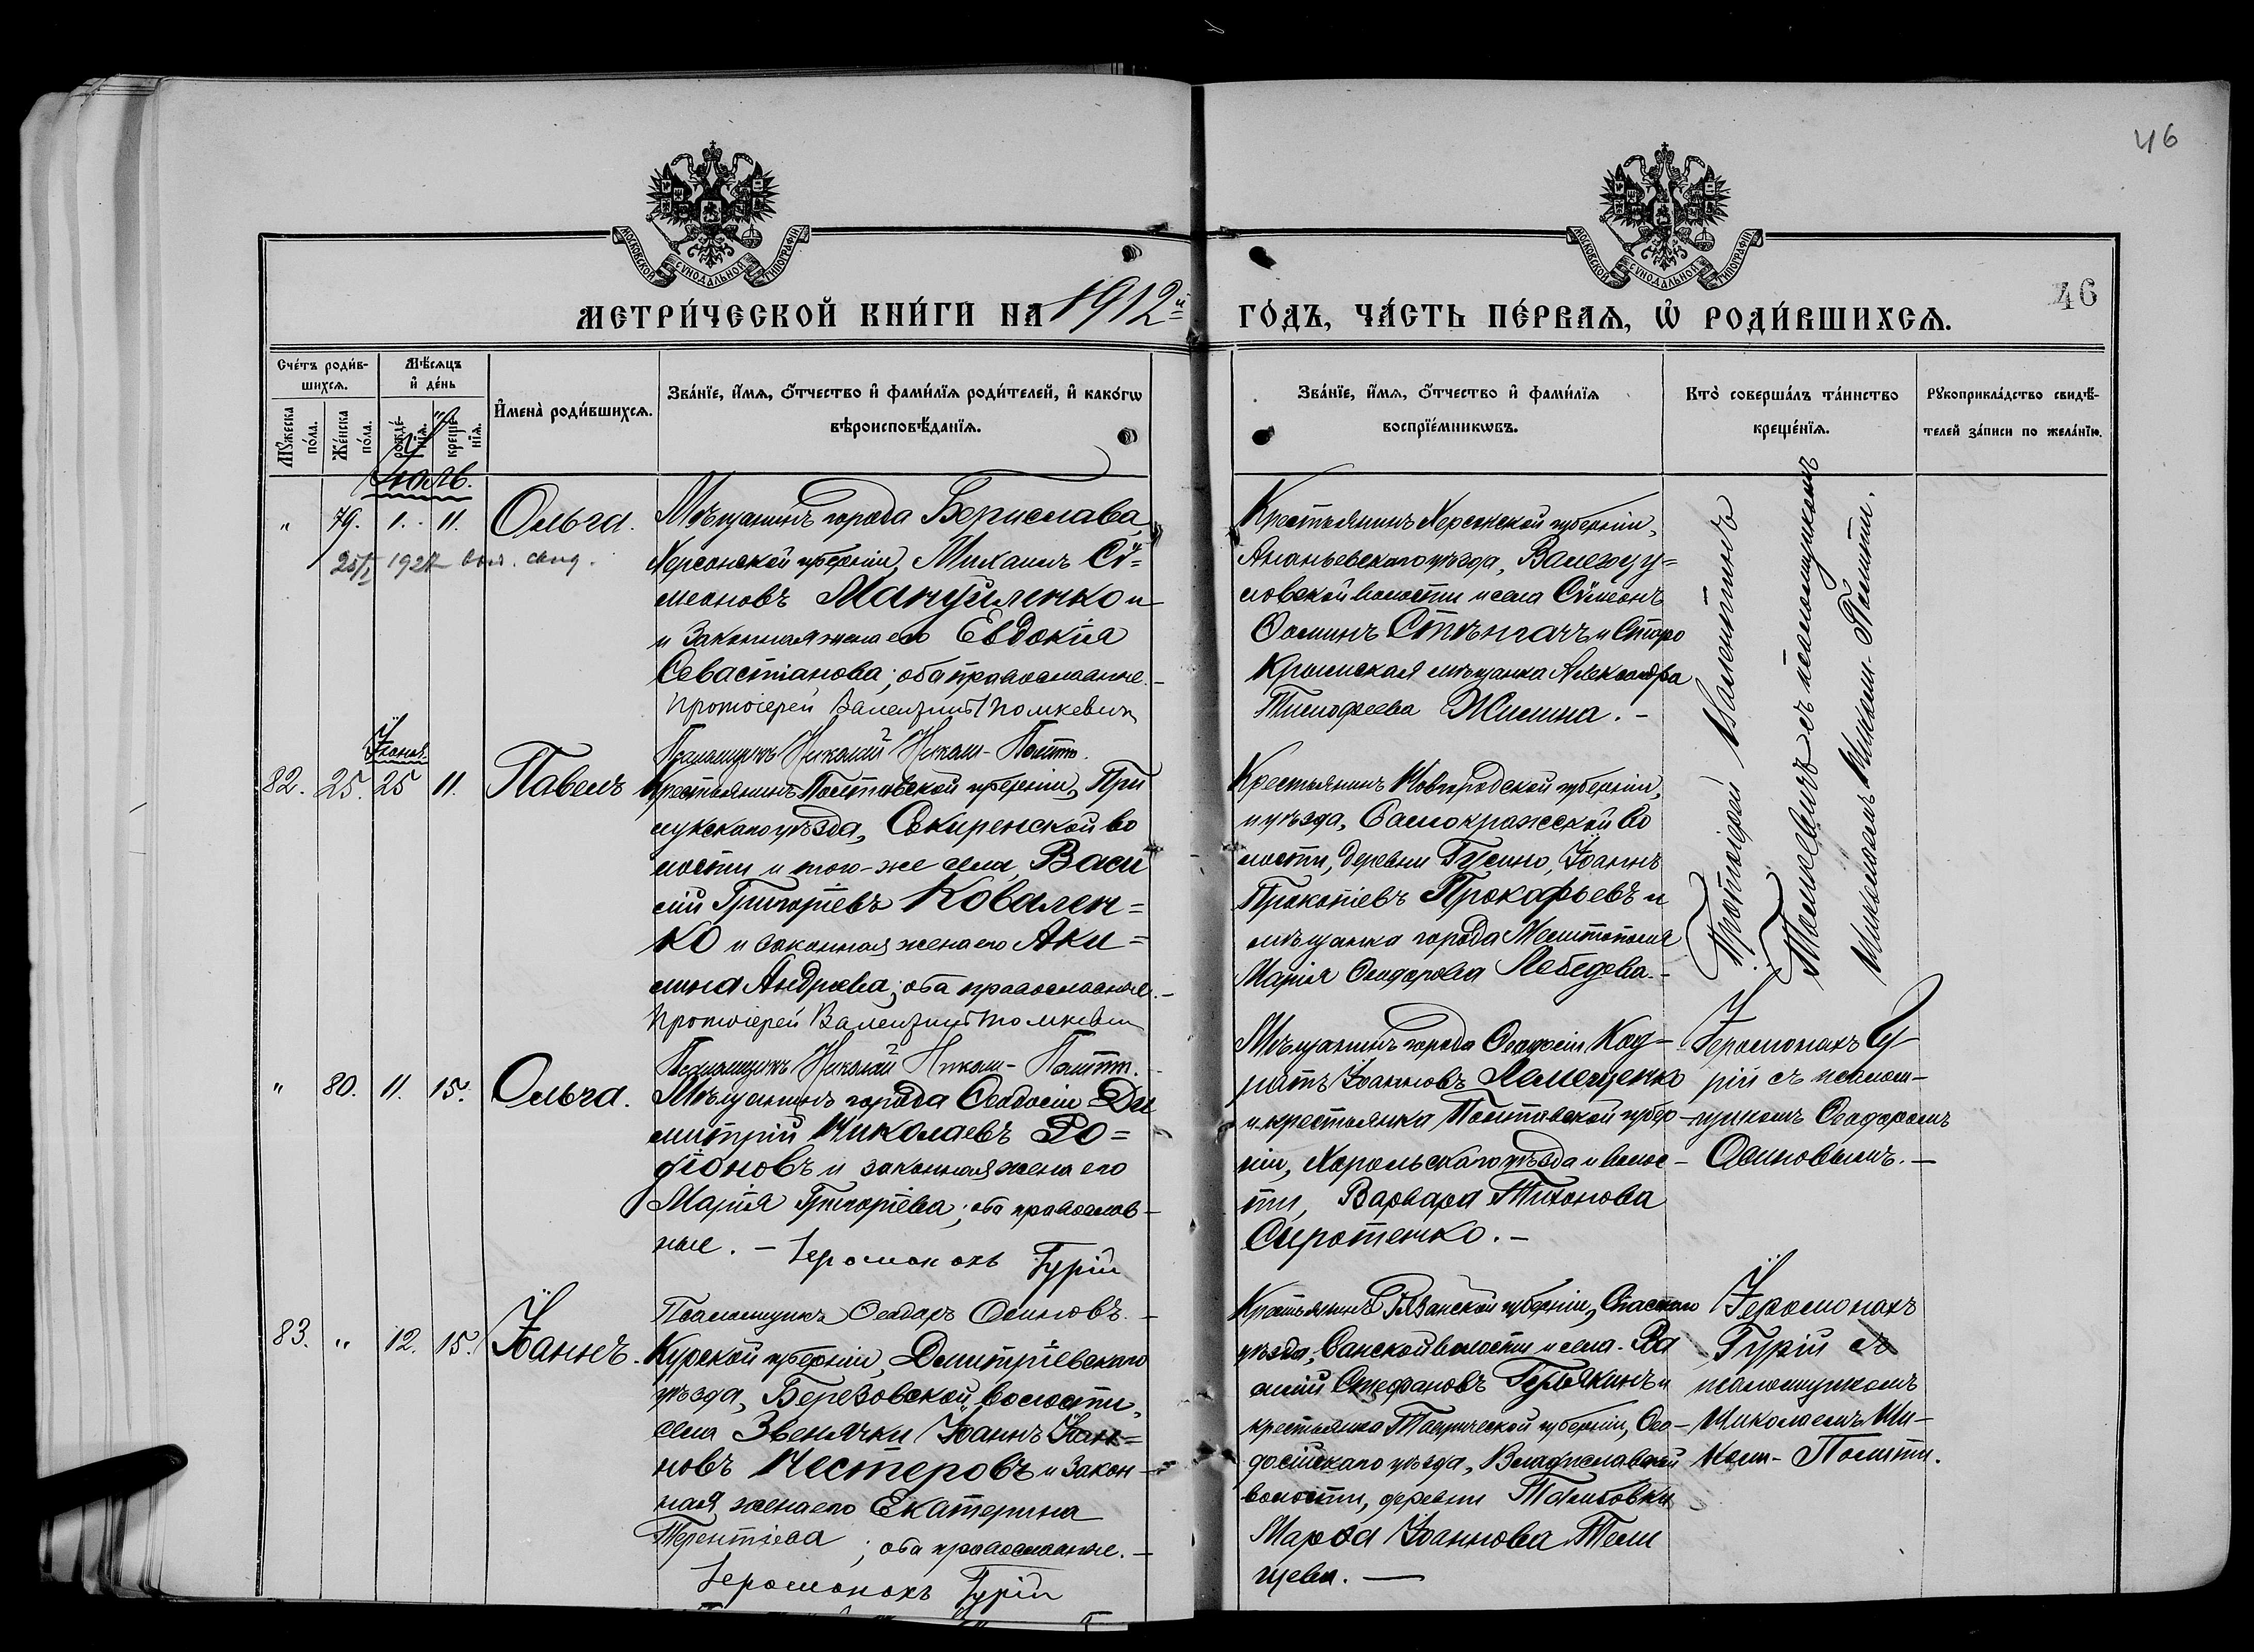 46
МОСКОВСКОЙ СѴНОДАЛЬНОЙ ТИПОГРАФІИ
МОСКОВСКОЙ СѴНОДАЛЬНОЙ ТИПОГРАФІИ
МЕТРИ́ЧЕСКОЙ КНИ́ГИ НА 1912й ГО́ДЪ, ЧА́СТЬ ПЕ́РВАѦ, Ѡ҆ РОДИ́ВШИХСѦ.
46
Сче́тъ роди́в-
шихсѧ.
Мꙋ́жеска по́ла.
Же́нска по́ла.
Мѣ́сѧцъ
и҆ де́нь
рожде́-
нїѧ.
креще́-
нїѧ.
И҆мена̀ роди́вшихсѧ.
Зва́нїе, и҆́мѧ, ѻ҆́тчество и҆ фами́лїѧ роди́телей, и҆ како́гѡ
вѣроисповѣ́данїѧ.
Зва́нїе, и҆́мѧ, ѻ҆́тчество и҆ фами́лїѧ
воспрїе́мникѡвъ.
Кто̀ соверша́лъ та́инство
креще́нїѧ.
Рꙋкоприкла́дство свидѣ́-
телей за́писи по жела́нїю.
Іюль.
„ 79. 1. 11. Ольга.
Мѣщанинъ города Берислава,
Херсонской губерніи, Михаилъ Сѵ-
меоновъ Мануйленко и
и законная жена его Евдокія
Севастіанова; оба православные.
Протоіерей Валентинъ Томкевич
Псаломщикъ Николай Ником-Политп.
Крестьянинъ Херсонской губерніи,
Ананьевскаго уѣзда, Валегоцу=
ловской волости и села Сѵмеонъ
Ѳоминъ Стѣнгачъ и Старо
Крымская мѣщанка Александра
Тимофеева Жилина. -
Протоіерей Валентинъ
Томкевичъ съ псаломщикомъ
Николаемъ Ником. Политп.
Іюня.
82. 25. 25 11. Павелъ
Крестьянинъ Полтавской губерніи, При
лукскаго уѣзда, Сокиренской во
лости и того-же села, Васи
лій Григоріевъ Ковален=
ко и законная жена его Аки=
лина Андреева; оба православные.-
Протоіерей Валентинъ Томкевич
Псаломщикъ Николай Ником-Политп.
Крестьянинъ Новгородской губерніи,
и уѣзда, Самокражской во
лости, деревни Гусино, Іоаннъ
Прокопіевъ Прокофьевъ и
мѣщанка города Мелитополя
Марія Ѳеодорова Лебедева.-
„ 80. 11. 15. Ольга.
Мѣщанинъ города Ѳеодосіи Ди
митрій Николаевъ Ро=
діоновъ и законная жена его
Марія Григоріева; оба православ-
ные. - Іеромонахъ Гурій
Псаломщикъ Ѳеодоръ Осиповъ.-
Мѣщанинъ города Ѳеодосіи Код-
ратъ Іоанновъ Лемещенко
и крестьянка Полтавской губер-
ніи, Хорольскаго уѣзда и волос-
ти, Варвара Тихонова
Сиротенко. -
Іеромонахъ Гу-
рій съ псалом-
щикомъ Ѳеодоромъ
Осиповымъ. -
83. „ 12. 15. Іоаннъ.
Курской губерніи, Дмитріевскаго
уѣзда, Березовской волости,
села Звенячки Іоаннъ Іоан=
новъ Нестеровъ и закон-
ная жена его Екатерина
Терентіева; оба православные. -
Іеромонахъ Гурій
Крестьянинъ Рязанской губерніи, Спаскаго
уѣзда, Санской волости и села Ва
силій Стефановъ и
крестьянка Таврической губерніи, Ѳео-
досійскаго уѣзда, Владиславской
волости, деревни
Марѳа Іоаннова Тели
щева. -
Іеромонахъ
Гурій съ
псаломщикомъ
Николаемъ Ни-
ком- Политп.